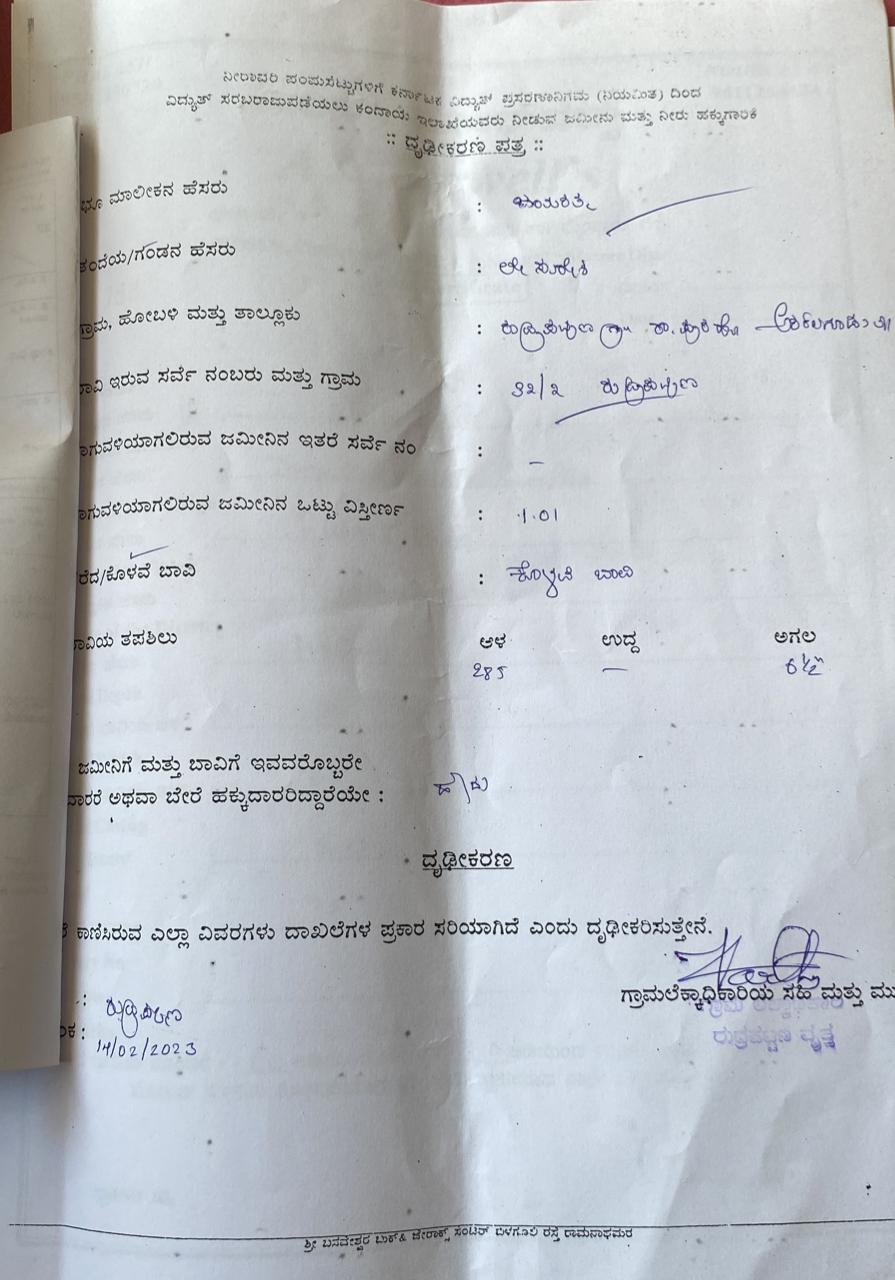 ನೀರಾವರಿ ಪಂಪುಸೆಟ್ಟುಗಳಿಗೆ ಕರ್ನಾಟಕ ವಿದ್ಯುತ್ ಪ್ರಸರಣಾನಿಗಮ (ನಿಯಮಿತ) ದಿಂದ
ವಿದ್ಯುತ್ ಸರಬರಾಮಪಡೆಯಲು ಕಂದಾಯ ಇಲಾಖೆಯವರು ನೀಡುವ ಜಮೀನು ಮತ್ತು ನೀರು ಹಕ್ಕುಗಾರಿಕೆ
:: ದೃಢೀಕರಣ ಪತ್ರ ::
ಭೂ ಮಾಲೀಕನ ಹೆಸರು :
ತಂದೆಯ/ಗಂಡನ ಹೆಸರು : ಲೇ ಸುರೇಶ
ಗ್ರಾಮ, ಹೋಬಳಿ ಮತ್ತು ತಾಲ್ಲೂಕು : ರುದ್ರಪಟ್ಟಣ ಗ್ರಾ ರಾ.ಪುರ ಹೋ ಅರಕಲಗೂಡು ತಾ||
ಾವಿ ಇರುವ ಸರ್ವೆ ನಂಬರು ಮತ್ತು ಗ್ರಾಮ : 32/2 ರುದ್ರಪಟ್ಟಣ
ಾಗುವಳಿಯಾಗಲಿರುವ ಜಮೀನಿನ ಇತರೆ ಸರ್ವೆ ನಂ : —
ಾಗುವಳಿಯಾಗಲಿರುವ ಜಮೀನಿನ ಒಟ್ಟು ವಿಸ್ತೀರ್ಣ : 1.01
ರೆದ/ಕೊಳವೆ ಬಾವಿ : ಕೊಳವೆ ಬಾವಿ
ಾವಿಯ ತಪಶಿಲು ಆಳ ಉದ್ದ ಅಗಲ
285 — 6½"
ಜಮೀನಿಗೆ ಮತ್ತು ಬಾವಿಗೆ ಇವವರೊಬ್ಬರೇ
ದಾರರೆ ಅಥವಾ ಬೇರೆ ಹಕ್ಕುದಾರರಿದ್ದಾರೆಯೇ : ಹೌದು
ದೃಢೀಕರಣ
ೆ ಕಾಣಿಸಿರುವ ಎಲ್ಲಾ ವಿವರಗಳು ದಾಖಲೆಗಳ ಪ್ರಕಾರ ಸರಿಯಾಗಿದೆ ಎಂದು ದೃಢೀಕರಿಸುತ್ತೇನೆ.
ಗ್ರಾಮಲೆಕ್ಕಾಧಿಕಾರಿಯ ಸಹಿ ಮತ್ತು ಮು
: ರುದ್ರಪಟ್ಟಣ
ಂಕ : 14/02/2023
ರುದ್ರಪಟ್ಟಣ ವೃತ್ತ
ಶ್ರೀ ಬಸವೇಶ್ವರ ಬುಕ್ & ಜೇರಾಕ್ಸ್ ಸೆಂಟರ್ ಬಿಳಗೂಲಿ ರಸ್ತೆ ರಾಮನಾಥಪುರ